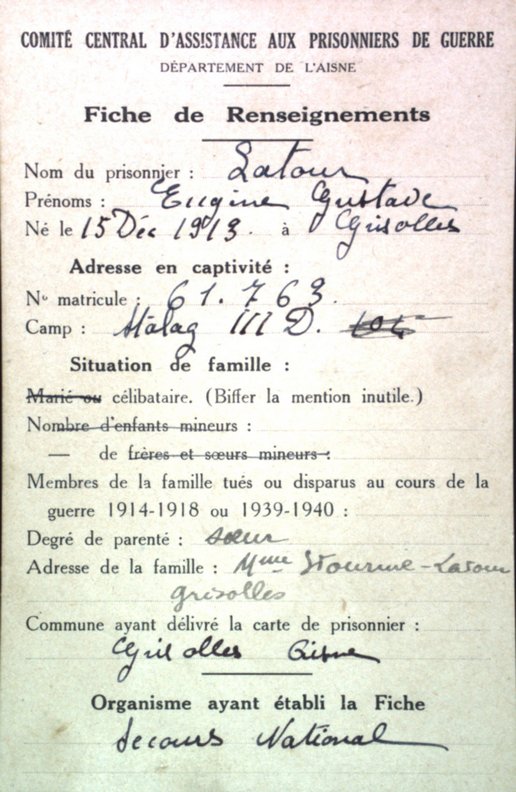 COMITÉ CENTRAL D'ASSISTANCE AUX PRISONNIERS DE GUERRE
DÉPARTEMENT DE L'AISNE
Fiche de Renseignements
Nom du prisonnier : Latour
Prénoms : Eugène Gustave
Né le 15 Déc 1913. à Grisolles
Adresse en captivité :
No matricule : 61.763.
Camp : Stalag III D.
Situation de famille :
Marié ou célibataire. (Biffer la mention inutile.)
Nombre d'enfants mineurs :
— de frères et sœurs mineurs :
Membres de la famille tués ou disparus au cours de la
guerre 1914-1918 ou 1939-1940 :
Degré de parenté : sœur
Adresse de la famille : Mme -Latour
Grisolles
Commune ayant délivré la carte de prisonnier :
Grisolles Aisne
Organisme ayant établi la Fiche
Secours National